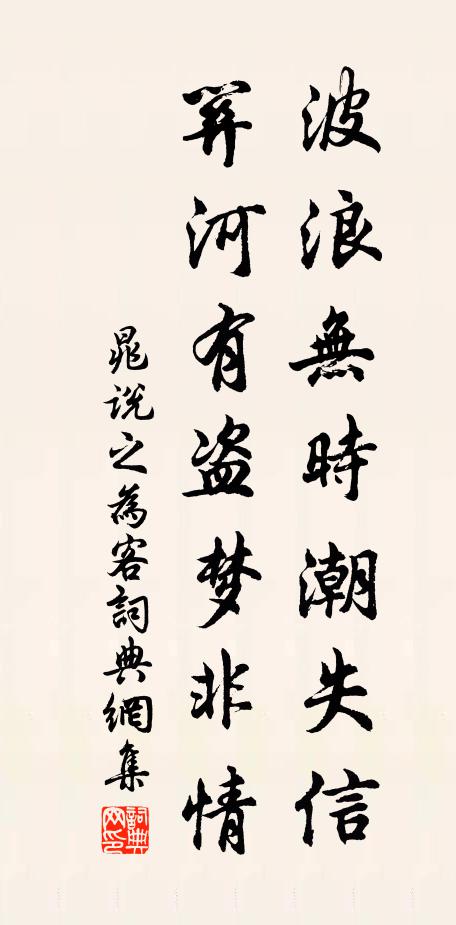 波浪無時潮失信
關河有盜梦非情
晁說之為客詞典網集
詞典
网印